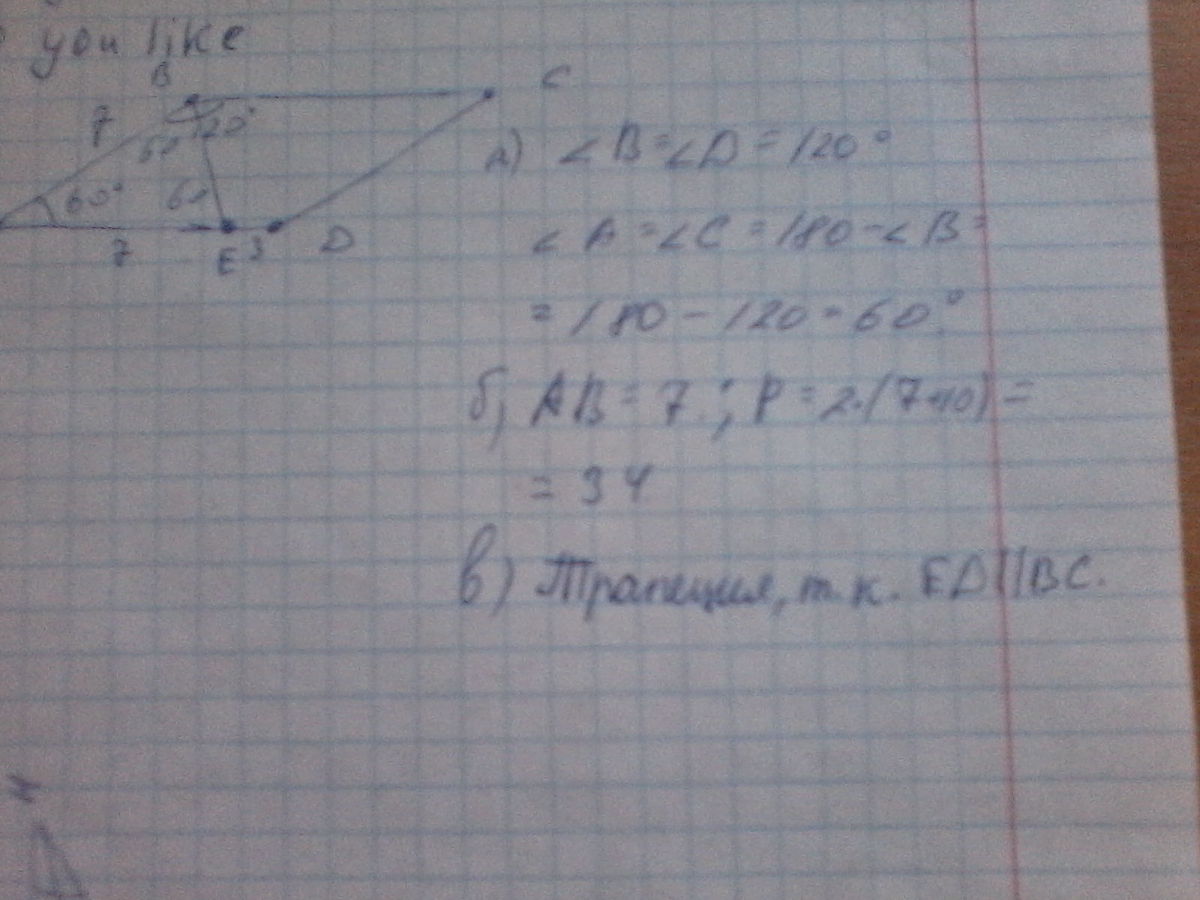 you like
B C
7 60 120°
60° 60
7 E 3 D
а) ∠B=∠D=120°
∠A=∠C=180-∠B=
=180-120=60°
б) AB=7; P=2·(7+10)=
=34
в) Трапеция, т.к. ED||BC.